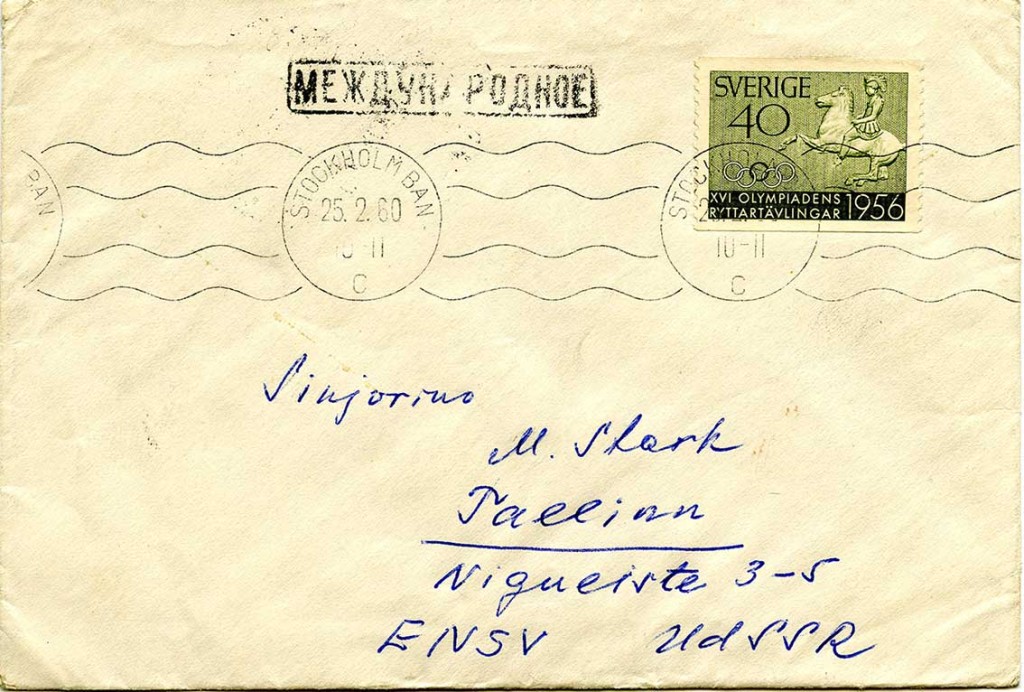 МЕЖДУНАРОДНОЕ
SVERIGE
40
XVI OLYMPIADENS
RYTTARTÄVLINGAR 1956
BAN
STOCKHOLM BAN
25.2.60
10-11
C
STOCKHOLM
10-11
C
Sinjorino
M. Stark
Tallinn
Nigueiste 3-5
ENSV UdSSR